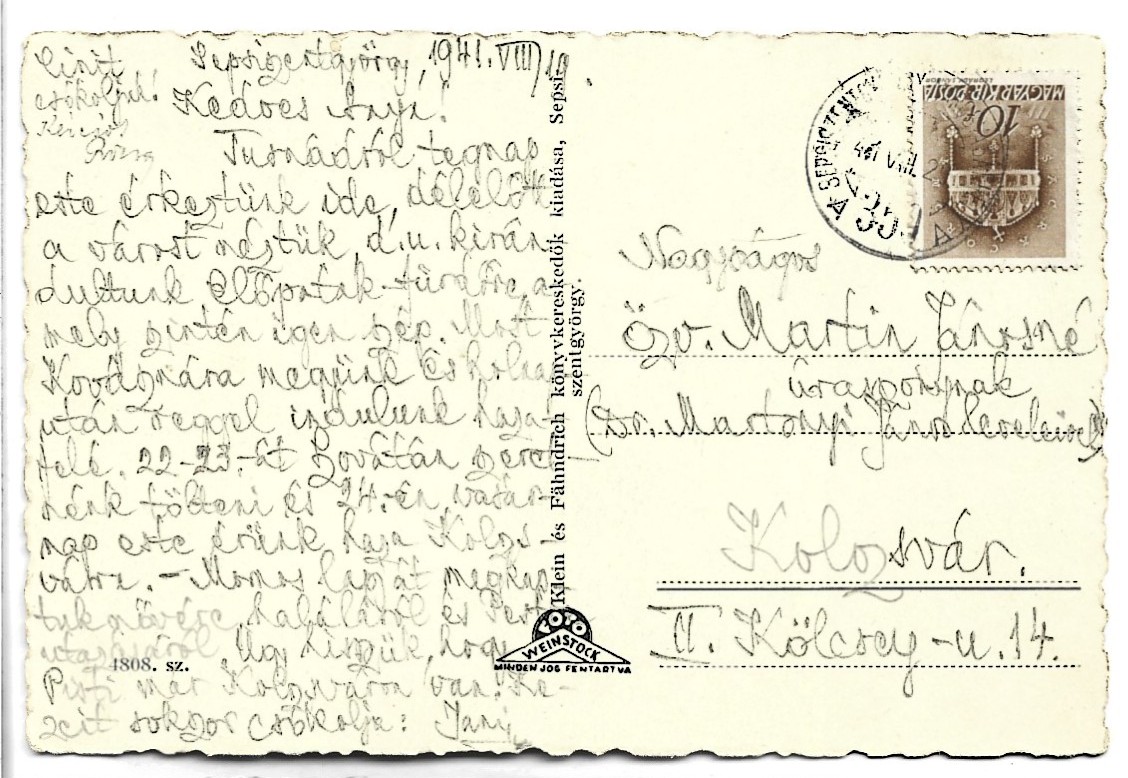 Sepsiszentgyörgy, 1941. VIII/19.
Kedves Anya!
Tusnádról tegnap
este érkeztünk ide, délelőtt
a várost néztük, d.u. kirán-
dultunk Előpatak-fürdőre, a
mely szintén igen szép. Most
Kovásznára megyünk és holnap-
után reggel indulunk haza-
felé. 22-23.-át Szovátán szeret-
nénk tölteni és 24.-én vasár-
nap este érünk haza Kolozs-
várra. – Momos lapját megkap-
tuk nővére haláláról és Pesti
utazásáról. Úgy hisszük, hogy
Pisti már Kolozsváron van. Ke-
zeit sokszor csókolja: Jani
csókoljuk!
Rózsa
Nagyságos
Özv. Martin Jánosné
úrasszonynak
(Dr. Martonyi János leveleivel)
Kolozsvár.
II. Kölcsey-u. 14.
Klein és Fähndrich könyvkereskedők kiadása, Sepsi-
szentgyörgy.
4808. sz.
FOTO
WEINSTOCK
MINDEN JOG FENTARTVA
MAGYAR KIR. POSTA
10 f
LÉGRÁDY SÁNDOR